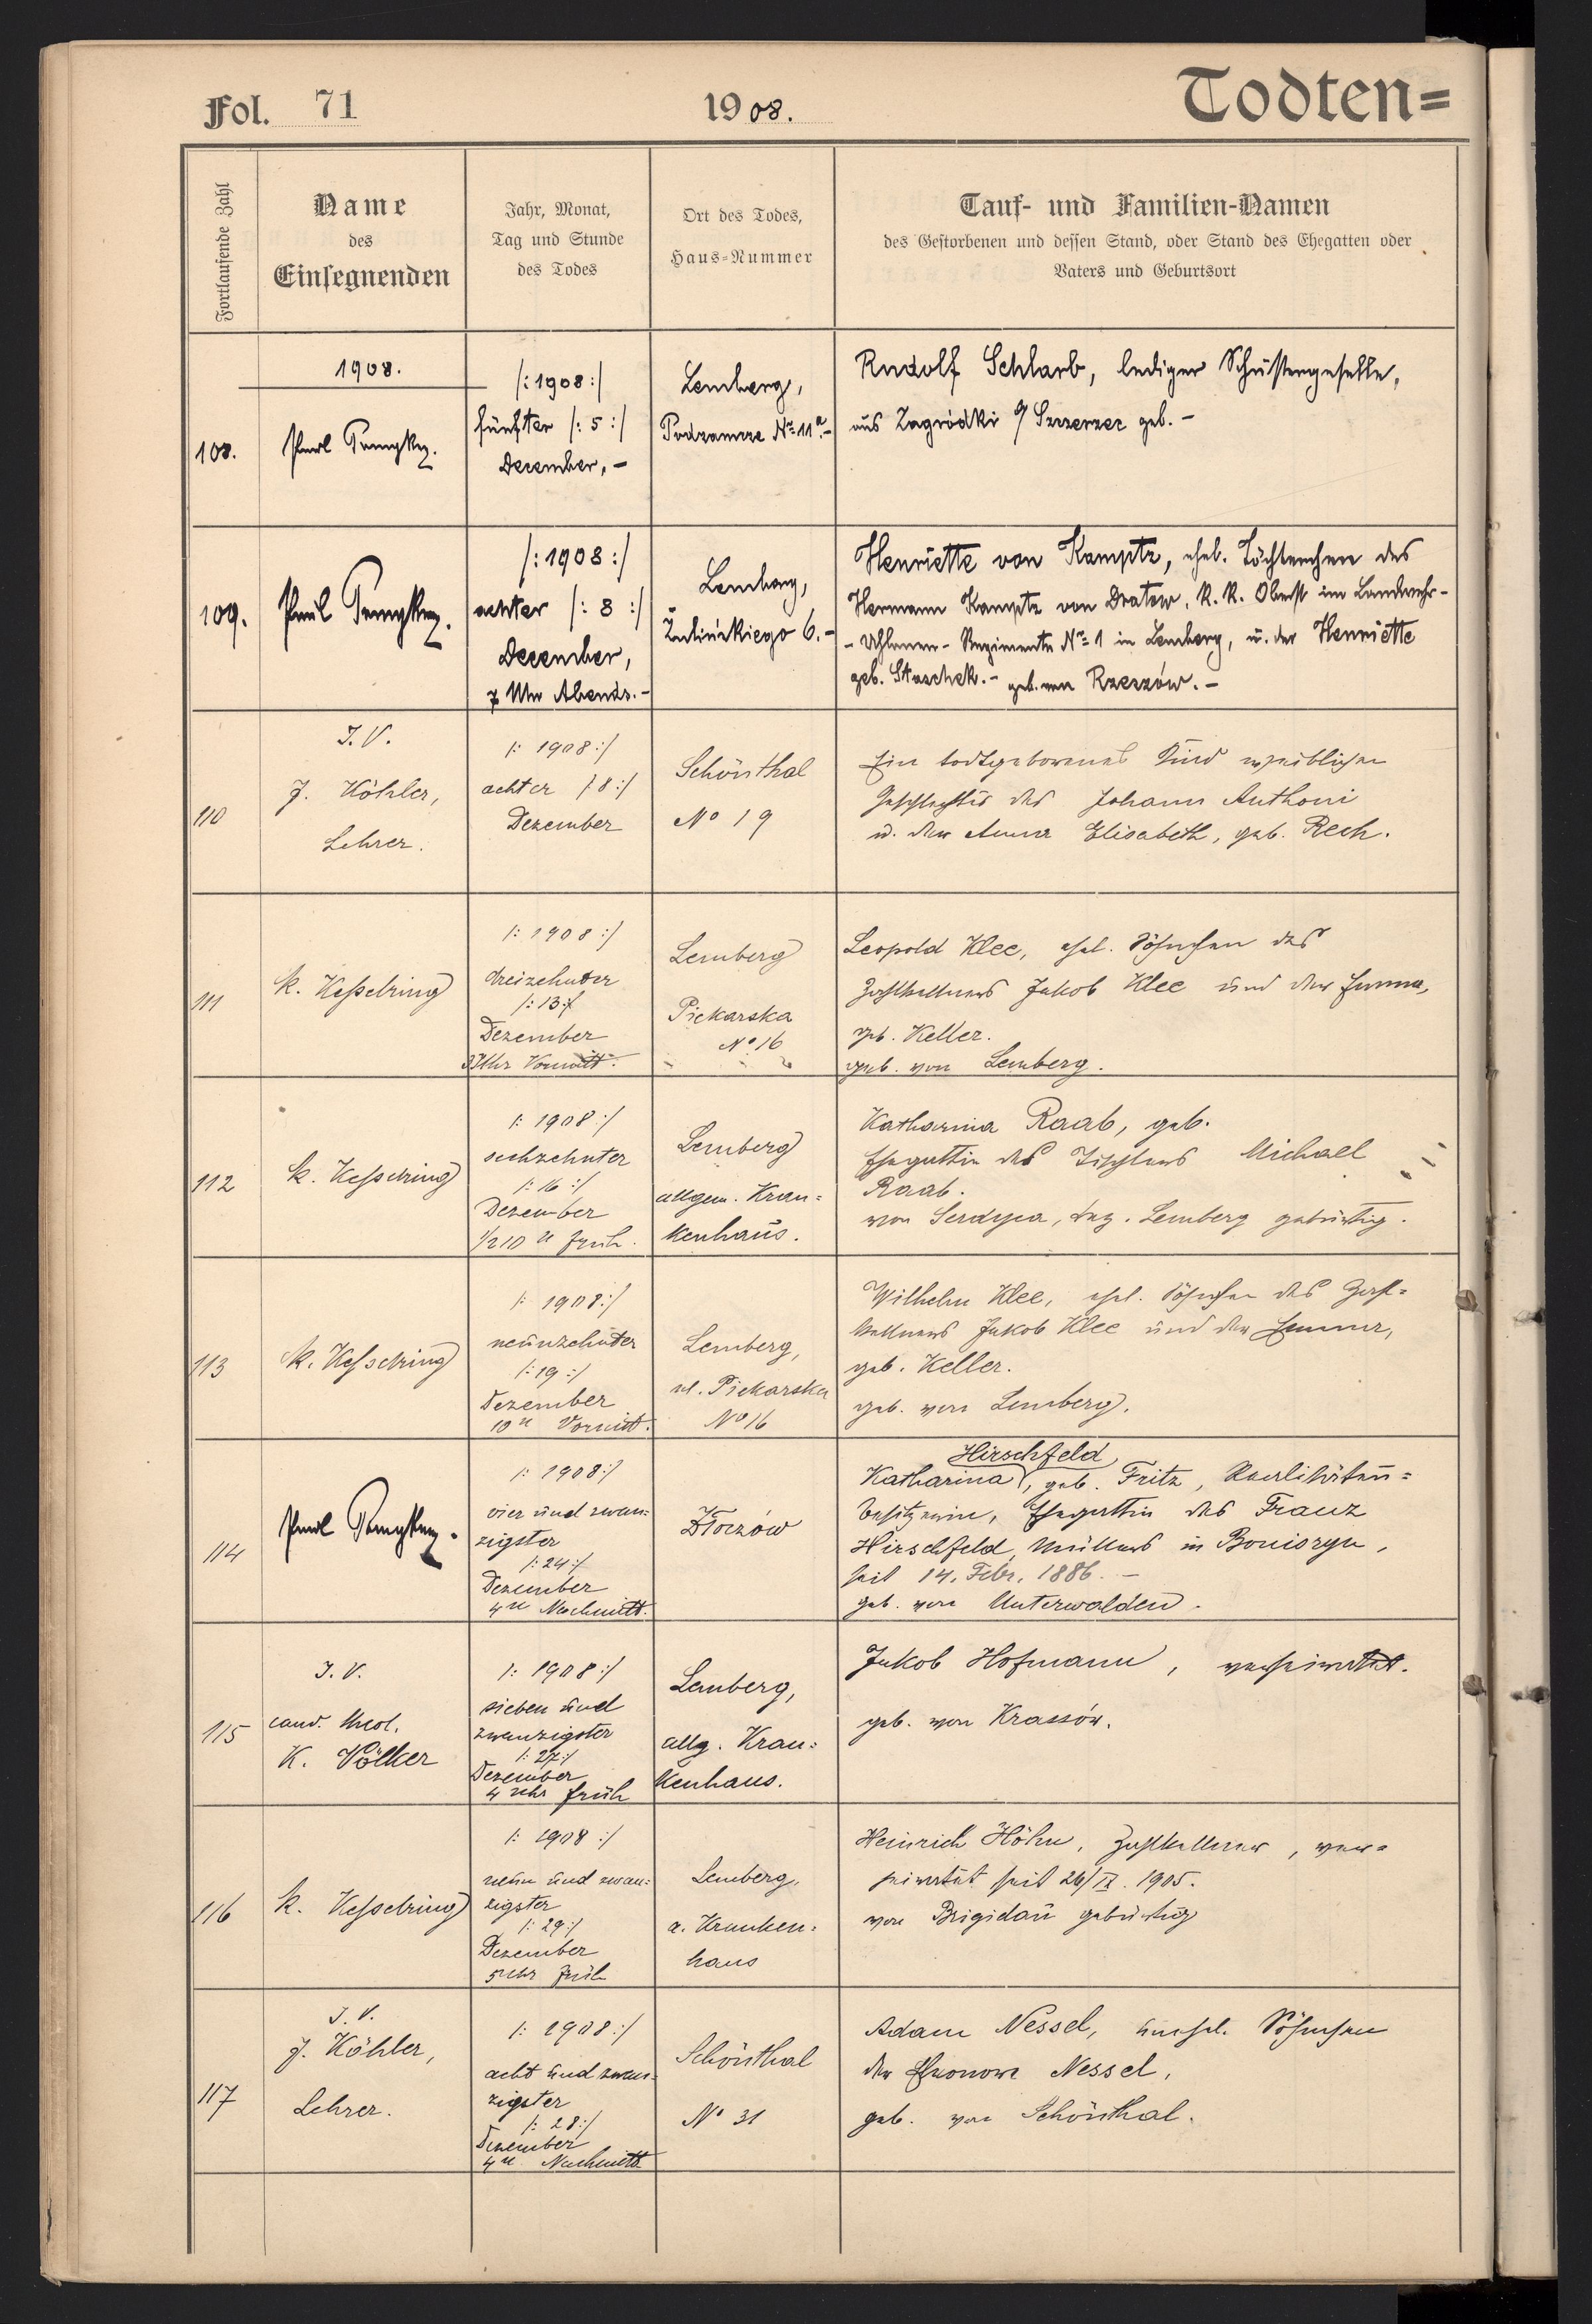 Fol. 71
1908.
Todten=
Fortlaufende Zahl
Name
des
Einsegnenden
Jahr, Monat,
Tag und Stunde
des Todes
Ort des Todes,
Haus=Nummer
Tauf- und Familien-Namen
des Gestorbenen und dessen Stand, oder Stand des Ehegatten oder
Vaters und Geburtsort
1908.
108.
Paul
/:1908:/
fünfter /:5:/
December, –
Lemberg,
Podzamcze Nr. 11a. –
Rudolf Schlarb, lediger Schustergeselle,
aus Zagródki q/ Szczerzec geb. –
109.
Paul
/:1908:/
achter /:8:/
December,
7 Uhr Abends. –
Lemberg,
Żulińskiego 6. –
Henriette von Kamptz, ehel. Töchterchen des
Hermann Kamptz von Dratow, k. k. Oberst im Landwehr-
- Uhlanen - Regimente Nr. 1 in Lemberg, u. der Henriette
geb. Staschek. – geb. von Rzeszów. –
110
I. V.
J. Köhler,
Lehrer.
/: 1908:/
achter /8:/
Dezember
Schönthal
No 19
Ein todtgeborenes Kind weiblichen
Geschlechtes des Johann Anthoni
u. der Anna Elisabeth, geb. Rech.
111
K. Kesselring
/: 1908:/
dreizehnter
/:13:/
Dezember
3 Uhr Vormitt.
Lemberg
Piekarska
No 16
Leopold Klee, ehel. Söhnchen des
Zahlkellners Jakob Klee und der Emma,
geb. Keller.
geb. von Lemberg.
112
K. Kesselring
/: 1908:/
sechzehnter
/:16:/
Dezember
1/2 10 U früh.
Lemberg
allgem. Kran=
kenhaus.
Katharina Raab, geb.
Ehegattin des Tischlers Michael
Raab.
von Serdyca, bez. Lemberg gebürtig.
113
K. Kesselring
/: 1908:/
neunzehnter
/:19:/
Dezember
10 U Vormitt.
Lemberg,
ul. Piekarska
No 16
Wilhelm Klee, ehel. Söhnchen des Zahl=
kellners Jakob Klee und der Emma,
geb. Keller.
geb. von Lemberg.
114
Paul
/: 1908:/
vier und zwan=
zigster
/:24:/
Dezember
4 U Nachmitt.
Złoczów
Hirschfeld
Katharina, geb. Fritz, Realitäten=
besitzerin, Ehegattin des Franz
Hirschfeld, Müllers in Boniszyn,
seit 14. Febr. 1886. –
geb. von Unterwalden.
115
I. V.
cand. theol.
K. Völker
/: 1908:/
sieben und
zwanzigster
/:27:/
Dezember
4 Uhr früh
Lemberg,
allg. Kran=
kenhaus.
Jakob Hofmann, verheiratet.
geb. von Krassów.
116
K. Kesselring
/: 1908:/
neun und zwan=
zigster
/:29:/
Dezember
5 Uhr früh
Lemberg,
a. Kranken=
haus
Heinrich Höhn, Zahlkellner, ver=
heiratet seit 26/IX. 1905.
von Brigidau gebürtig
117
I. V.
J. Köhler,
Lehrer.
/: 1908:/
acht und zwan=
zigster
/: 28:/
Dezember
4 U. Nachmitt
Schönthal
No 31
Adam Nessel, unehel. Söhnchen
der Eleonore Nessel,
geb. von Schönthal.